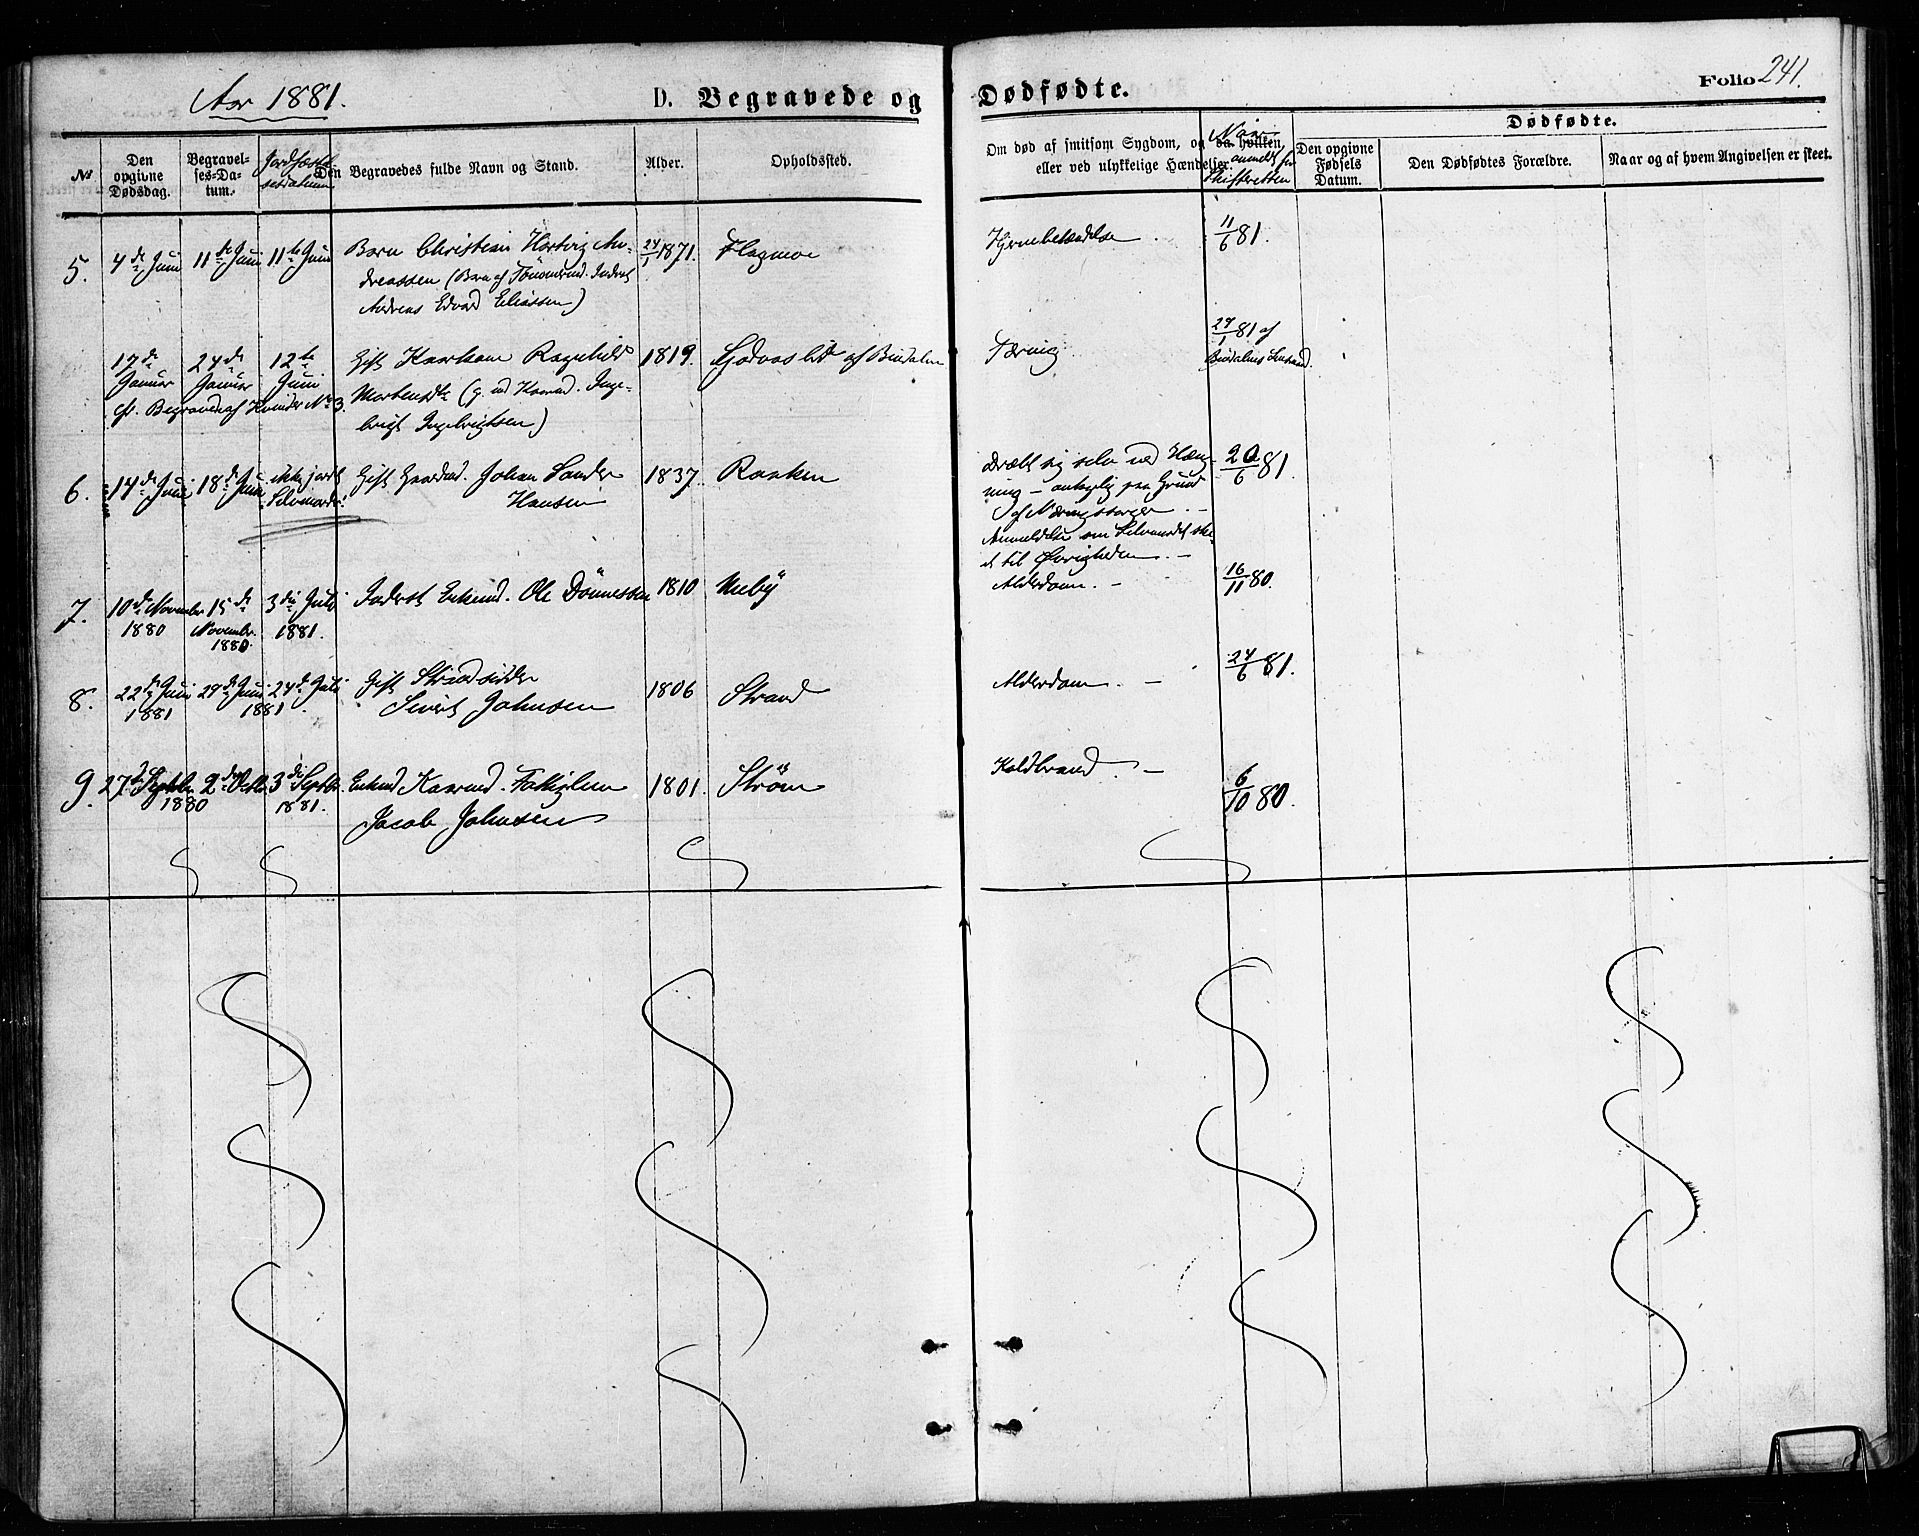 Aar 1881.
D. Begravede og Dødfødte.
Folio 241.
№
Den opgivne Dødsdag.
Begravelses-Datum.
Jordfæstelsesdatum
Den Begravedes fulde Navn og Stand.
Alder.
Opholdssted.
Om død af smitsom Sygdom, og da hvilken, eller ved ulykkelige Hændelser.
Naar anmeldt for Skifteretten
Dødfødte.
Den opgivne Fødsels Datum.
Den Dødfødtes Forældre.
Naar og af hvem Angivelsen er skeet.
5. 4de Juni 11te Juni 11te Juni Barn Christian Hartvig An- 24/1 1871. Flagmoe Hjernebetændelse 11/6 81.
dreassen (Barn af Inderst
Andreas Edvard Eliassen)
17de Januar 24de Januar 12te Juni Gift Ragnhild 1819. af Bindalen Tæring 29/1 81 af Bindalens
Mortensdtr (g. m. Inge-
cfr. Begravede af Kvinder No 3.
brigt Ingebrigtsen)
6. 14de Juni 18de Juni ikke jordf. Selvmorder! Gift Gaardmd. Johan Sander 1837. Ranken Dræbt sig selv ved Hæng- 20/6 81.
Hansen
ning – antagelig paa Grund
af Næringssorger –
Anmeldelse om Selvmordet ske-
et til Øvrigheden. –
7. 10de November 1880 15de November 1880. 3die Juli 1881. Inderst Enkemd. Ole Dönnessen 1810 Nuby Alderdom. – 16/11 80.
8. 22de Juni 1881 29de Juni 1881 24de Juli Gift Strandsidder 1806 Strand Alderdom. – 24/6 81.
Sivert Johnsen
9. 27de Septbr. 1880 2den Octbr. 3die Septbr. 1881. Enkemd Fattiglem 1801. Ström Koldbrand. – 6/10 80.
Jacob Johnsen